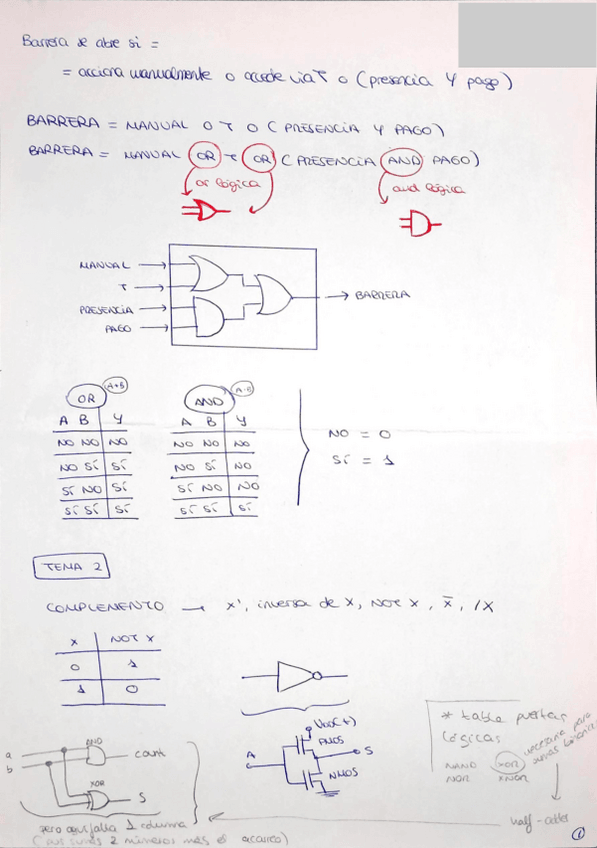 Barrera se abre si =
= acciona manualmente o accede via T o (presencia Y pago)
BARRERA = MANUAL O T O (PRESENCIA Y PAGO)
BARRERA = MANUAL OR T OR (PRESENCIA AND PAGO)
or lógica
and lógica
MANUAL
T
PRESENCIA
PAGO
BARRERA
OR A+B
A B Y
NO NO NO
NO SÍ SÍ
SÍ NO SÍ
SÍ SÍ SÍ
AND A·B
A B Y
NO NO NO
NO SÍ NO
SÍ NO NO
SÍ SÍ SÍ
NO = 0
SÍ = 1
TEMA 2
COMPLEMENTO → x', inversa de x, NOT x, x̄, /x
x NOT x
0 1
1 0
VDD(+)
PMOS
A
S
NMOS
a
b
AND
cout
XOR
S
pero aquí falta 1 columna
(aus sumas 2 números más el acarreo)
* tabla puertas
lógicas
NAND XOR
NOR XNOR
necesaria para
sumas binarias
half-adder
1